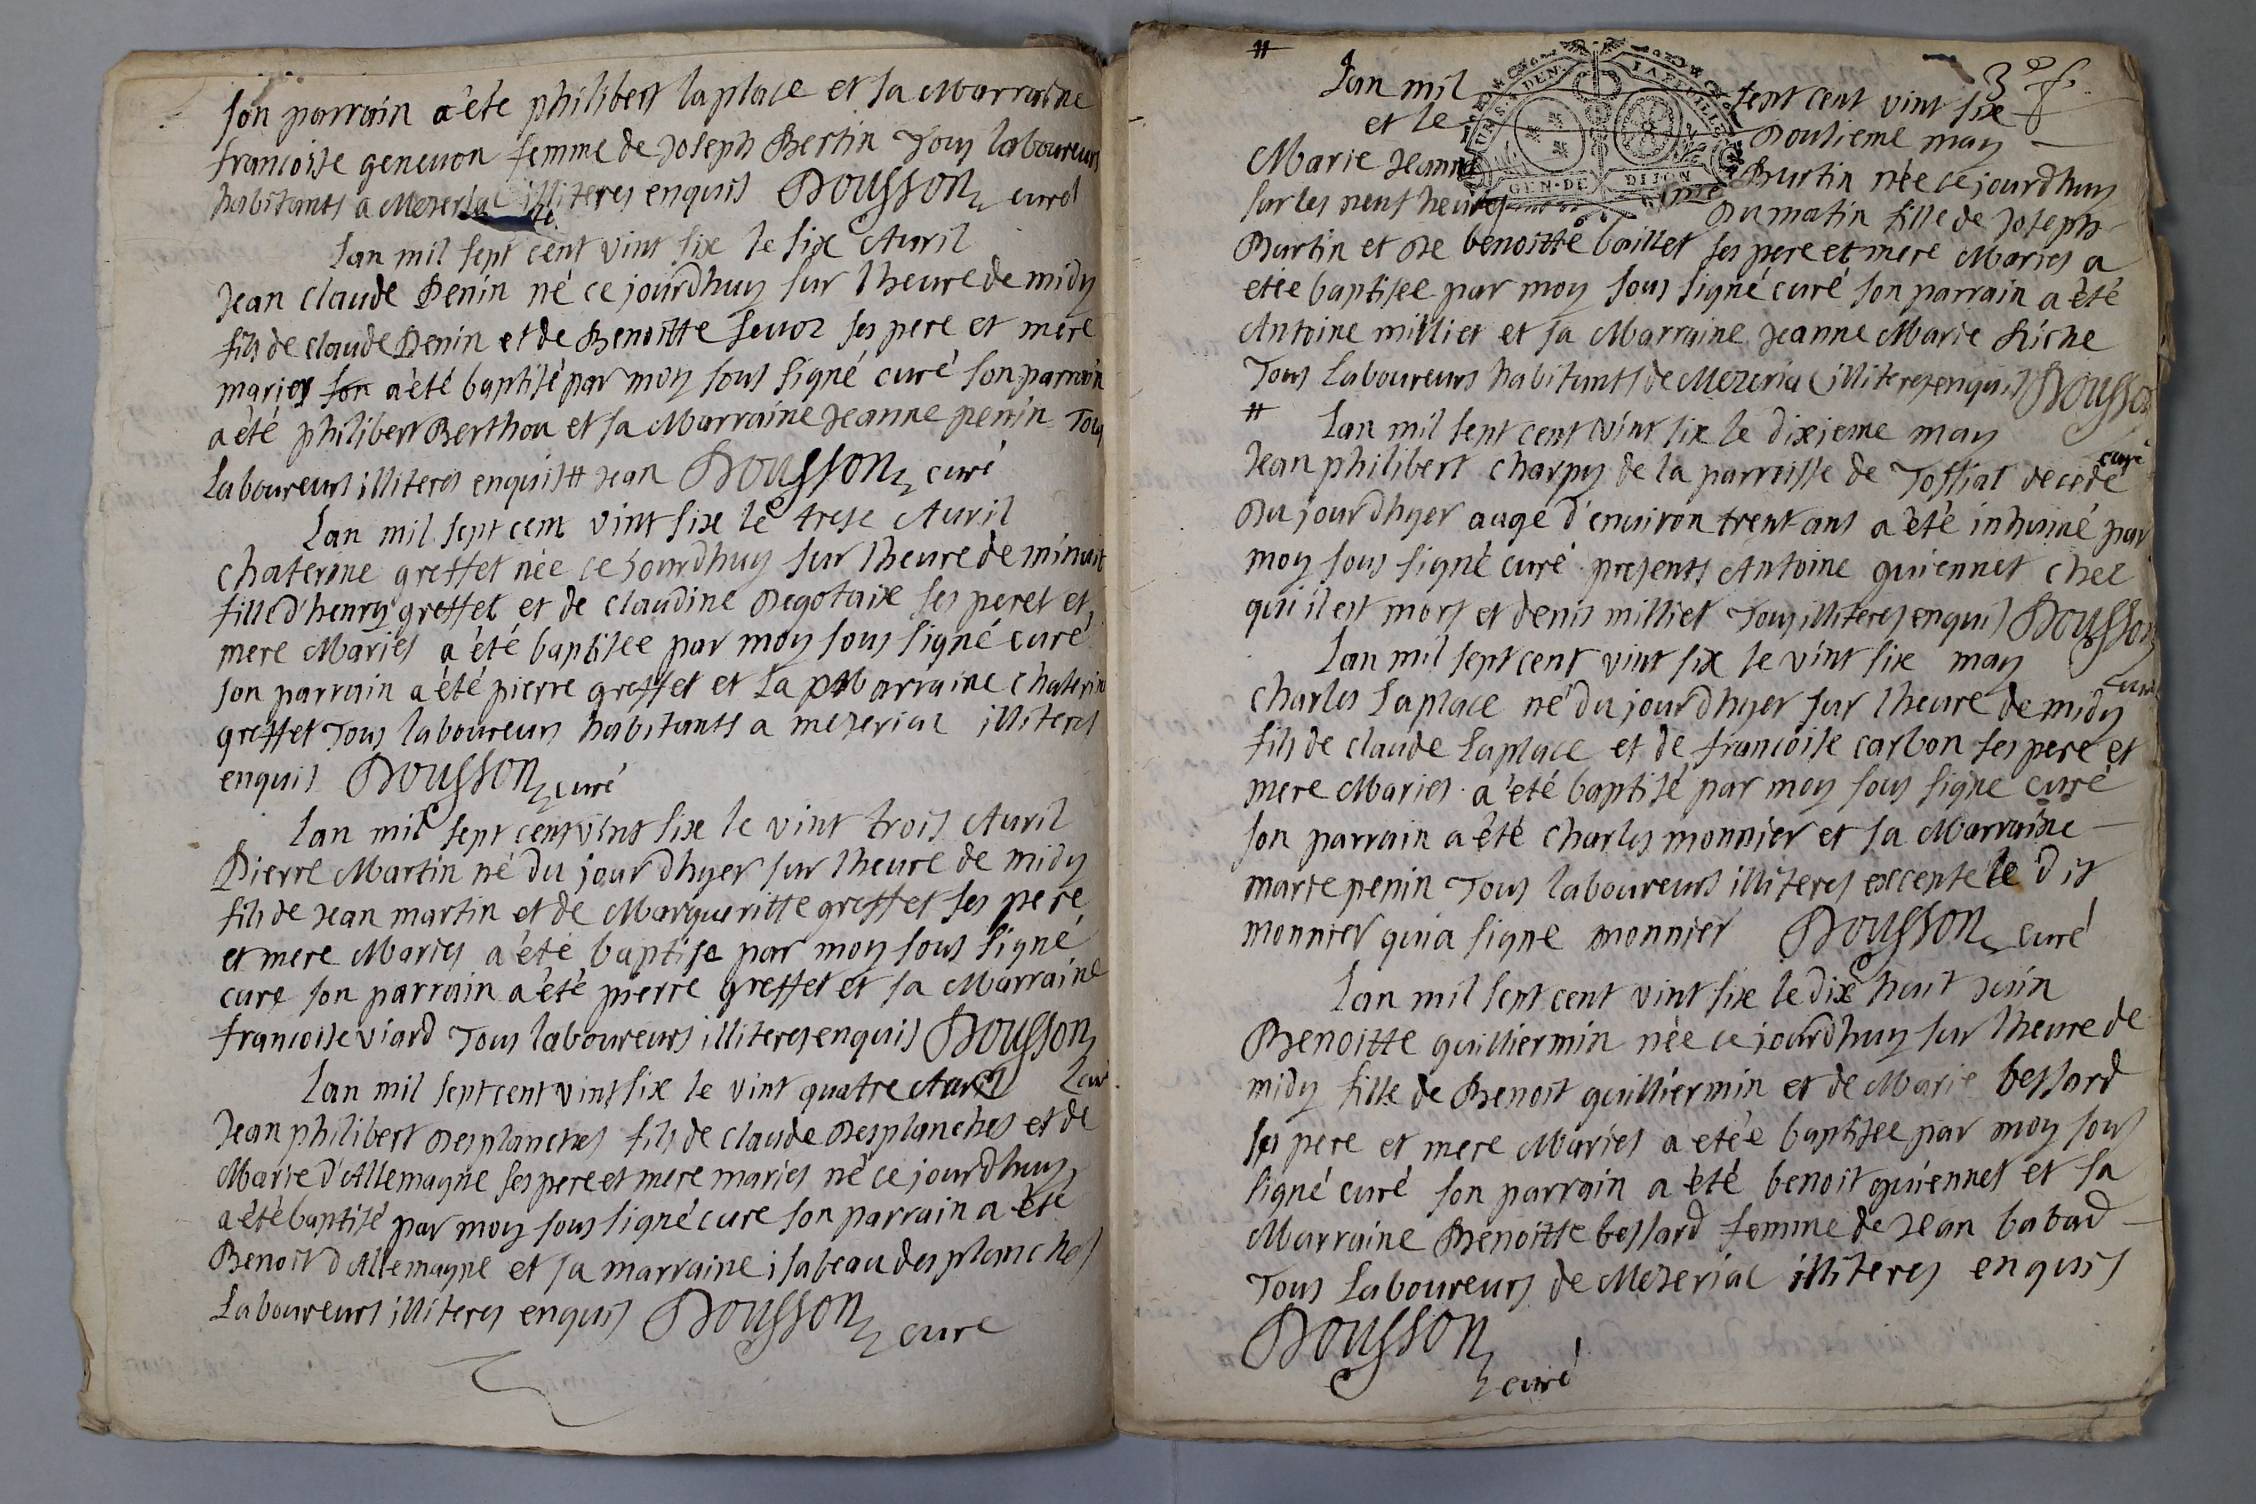 son parrain a été philibert laplace et sa Marraine
francoise geneuon femme de Joseph Bertin Tous laboureurs
habitants a Mezerial illiteres enquis Dousson curé
Lan mil sept cent vint six le six Auril
Jean claude Penin né ce jourdhuy sur lheure de midy
fils de claude Penin et de Benoitte seuoz ses pere et mere
maries son a été baptisé par moy sous signé curé son parrain
a été philibert Berthou et sa Marraine Jeanne penin Tous
Laboureurs illiteres enquis # Jean Dousson curé
Lan mil sept cent vint six le trese Auril
chaterine greffet née ce jourdhuy sur lheure de minuit
fille d'henry greffet et de claudine Degotaix ses peret et
mere Maries a été baptisee par moy sous signé curé
son parrain a été pierre greffet et sa Marraine chaterine
greffet Tous laboureurs habitants a mezerial illiteres
enquis Dousson curé
Lan mil sept cent vint six le vint trois Auril
Pierre Martin né du jour dhyer sur lheure de midy
fils de Jean martin et de Margueritte greffet ses pere
et mere Maries a été baptise par moy sous signé
cure son parrain a été pierre greffet et sa Marraine
francoise viard Tous laboureurs illiteres enquis Dousson
cur
Lan mil sept cent vint six le vint quatre Auril
Jean philibert Desplanches fils de claude Desplanches et de
Marie d'Allemagne ses pere et mere maries né ce jourdhuy
a été baptisé par moy sous signé cure son parrain a été
Benoit dAllemagne et sa marraine isabeau desplanches
Laboureurs illiteres enquis Dousson cure
# Lan mil sept cent vint six 3e f
et le Doutieme may
GEN·DE DIJON
Marie Jeanne Burtin née ce jourdhuy
sur les neuf heures Du matin fille de Joseph
Burtin et De benoitte baillet ses pere et mere Maries a
etée baptisee par moy sous signé curé son parrain a été
Antoine milliet et sa Marraine Jeanne Marie Riche
Tous Laboureurs habitants de Mezerial illiteres enquis Dousson
curé
# Lan mil sept cent vint six le dixieme may
Jean philibert charpy de la parroisse de Tossiat decedé
Du jourdhyer auge d'enuiron trent ans a été inhumé par
moy sous signé curé presents Antoine quiennet chee
qui il est mort et denis milliet Tous illiteres enquis Dousson
cur
Lan mil sept cent vint six le vint six may
charles Laplace né du jour dhyer sur lheure de midy
fils de claude Laplace et de francoise carbon ses pere et
mere Maries a été baptisé par moy sous signe curé
son parrain a été charles monnier et sa Marraine
marie penin Tous laboureurs illiteres excepte le dit
monnier qui a signe monnier Dousson curé
Lan mil sept cent vint six le dix huit Juin
Benoitte guilliermin née ce jourdhuy sur lheure de
midy fille de Benoit guilliermin et de Marie bessard
ses pere et mere Maries a etée baptisee par moy sous
signé curé son parrain a été benoit quiennet et sa
Marraine Benoitte bessard femme de Jean babad
Tous Laboureurs de Mezerial illiteres enquis
Dousson
curé